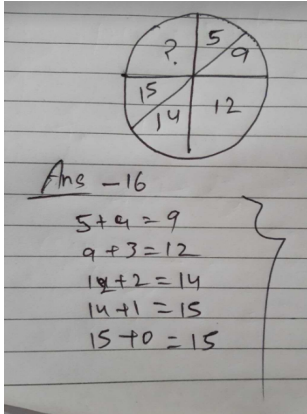 ? 5
9
15
14 12
Ans - 16
5+4=9
9+3=12
12+2=14
14+1=15
15+0=15